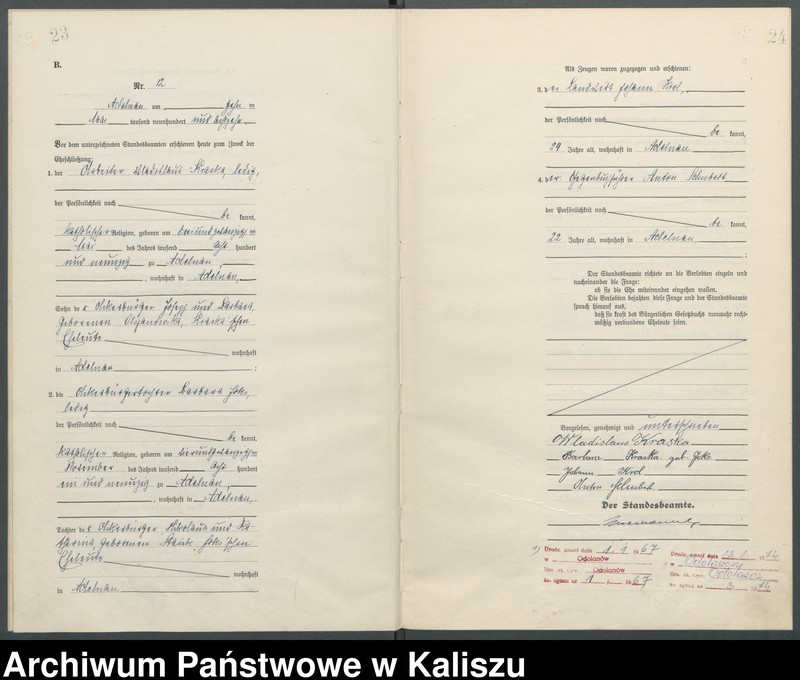 23
B.
Nr. 12
Adelnau am zehn ten
Mai tausend neunhundert und achtzehn
Vor dem unterzeichneten Standesbeamten erschienen heute zum Zweck der
Eheschließung:
1. der Arbeiter Wladislaus Kraska, ledig,
der Persönlichkeit nach
be kannt,
katholischer Religion, geboren am
Mai des Jahres tausend acht hundert
und neunzig zu Adelnau,
, wohnhaft in Adelnau,
Sohn der Ackerbürger Josef und Barbara,
geborenen Kraska'schen
Eheleute
wohnhaft
in Adelnau
2. die Ackerbürgertochter Barbara Joks,
ledig
der Persönlichkeit nach
be kannt,
katholischer Religion, geboren am vierundzwanzigsten
November des Jahres tausend acht hundert
ein und neunzig zu Adelnau,
, wohnhaft in Adelnau,
Tochter der Ackerbürger Nikolaus und Ka-
tharina, geborenen Joks'schen
Eheleute
wohnhaft
in Adelnau
24
Als Zeugen waren zugezogen und erschienen:
3. der Landwirt Johann Krol,
der Persönlichkeit nach
be kannt,
24 Jahre alt, wohnhaft in Adelnau
4. der Gegenbuchführer Anton Schubert
der Persönlichkeit nach
be kannt,
22 Jahre alt, wohnhaft in Adelnau,
Der Standesbeamte richtete an die Verlobten einzeln und
nacheinander die Frage:
ob sie die Ehe miteinander eingehen wollen.
Die Verlobten bejahten diese Frage und der Standesbeamte
sprach hierauf aus,
daß sie kraft des Bürgerlichen Gesetzbuchs nunmehr recht-
mäßig verbundene Eheleute seien.
Vorgelesen, genehmigt und unterschrieben
Wladislaus Kraska
Barbara Kraska geb. Joks
Johann Krol
Anton Schubert
Der Standesbeamte.
1) Urodz. zmarł dnia 1.1 1967
w Odolanów
Urz. St. Cyw. Odolanów
Nr. zgonu nr 1 / 1967
Urodz. zmarł dnia 1974
w Odolanów
Urz. St. Cyw. Odolanów
Nr. zgonu nr 1974
Archiwum Państwowe w Kaliszu